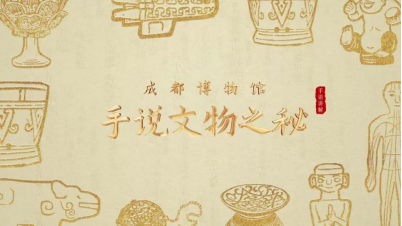 成都博物馆
手说文物之秘